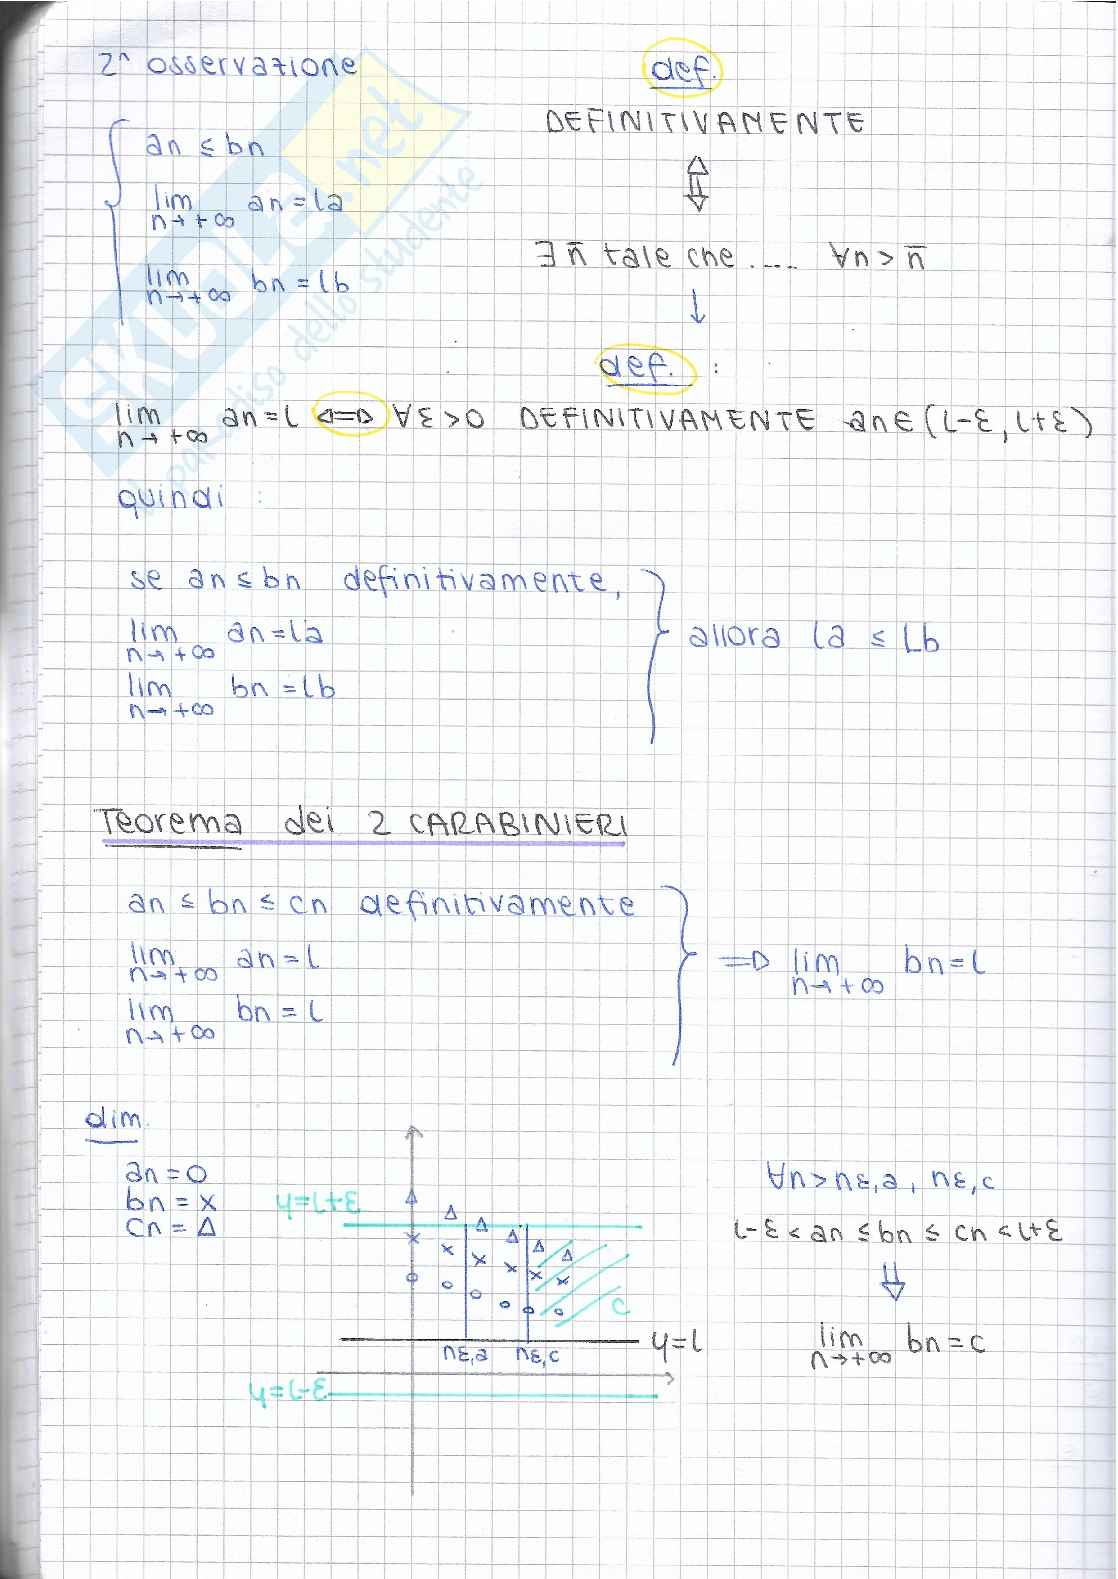 2^ osservazione
an ≤ bn
lim an = la
n→+∞
lim bn = lb
n→+∞
def.
DEFINITIVAMENTE
⇕
∃ n̄ tale che .... ∀n > n̄
↓
def. :
lim an = l ⇔ ∀ε > 0 DEFINITIVAMENTE an ∈ (l-ε, l+ε)
n→+∞
quindi :
se an ≤ bn definitivamente,
lim an = la
n→+∞
lim bn = lb
n→+∞
allora la ≤ lb
Teorema dei 2 CARABINIERI
an ≤ bn ≤ cn definitivamente
lim an = l
n→+∞
lim bn = l
n→+∞
⇒ lim bn = l
n→+∞
dim.
an = o
bn = x
cn = Δ
y=l+ε
c
y=l
nε,a nε,c
y=l-ε
∀n > nε,a , nε,c
l-ε < an ≤ bn ≤ cn < l+ε
⇓
lim bn = c
n→+∞
SKUOLA.net
il paradiso dello studente